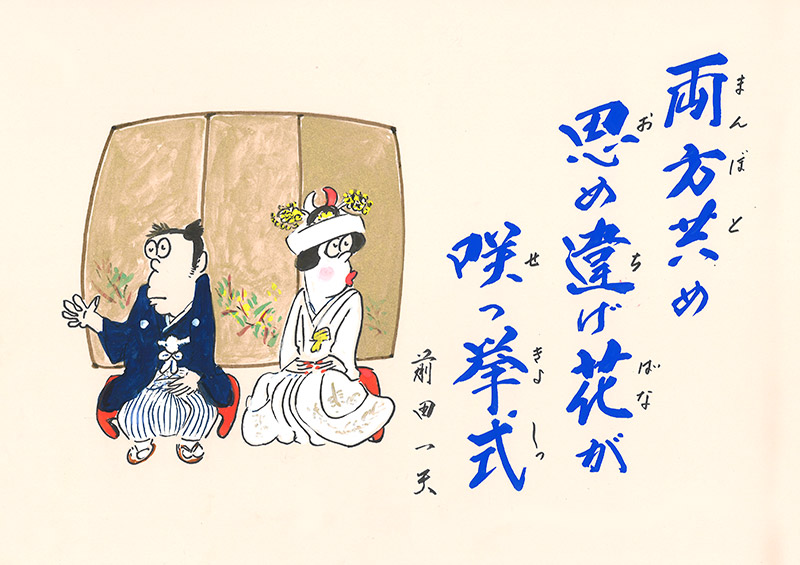 まんぼと
両方共め
おちばな
思め違げ花が
せきょしっ
咲っ挙式
前田一天